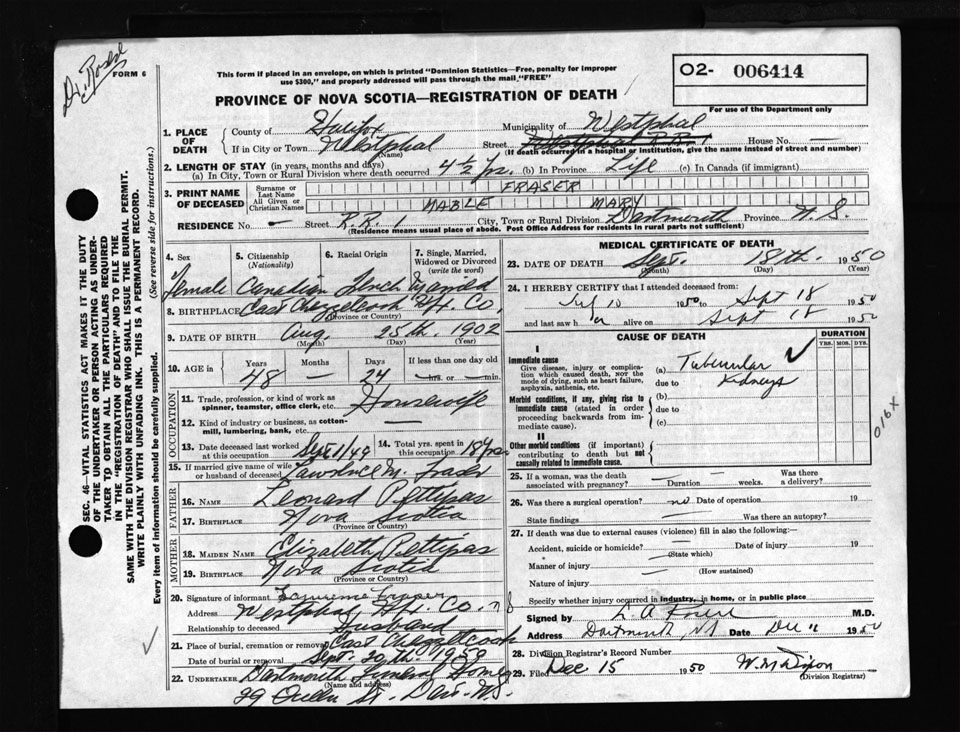 Dr. Rosere
FORM 6
This form if placed in an envelope, on which is printed "Dominion Statistics—Free, penalty for improper
use $300," and properly addressed will pass through the mail, "FREE"
PROVINCE OF NOVA SCOTIA—REGISTRATION OF DEATH
02- 006414
For use of the Department only
1. PLACE OF DEATH County of Halifax Municipality of Westphal
If in City or Town Westphal (Name) Street Westphal R.R. 1 House No. —
(If death occurred in a hospital or institution, give the name instead of street and number)
2. LENGTH OF STAY (in years, months and days)
(a) In City, Town or Rural Division where death occurred 4 ½ yrs. (b) In Province Life (c) In Canada (if immigrant)
3. PRINT NAME OF DECEASED Surname or Last Name FRASER
All Given or Christian Names MABLE MARY
RESIDENCE No. — Street R.R. 1 City, Town or Rural Division Dartmouth Province N.S.
(Residence means usual place of abode. Post Office Address for residents in rural parts not sufficient)
4. Sex 5. Citizenship (Nationality) 6. Racial Origin 7. Single, Married, Widowed or Divorced (write the word)
Female Canadian French Married
8. BIRTHPLACE East Chezzetcook Hfx. Co.
(Province or Country)
9. DATE OF BIRTH Aug. 25th. 1902
(Month) (Day) (Year)
10. AGE in Years Months Days If less than one day old
48 — 24 —hrs. or —min.
11. Trade, profession, or kind of work as spinner, teamster, office clerk, etc. Housewife
12. Kind of industry or business, as cotton-mill, lumbering, bank, etc. —
13. Date deceased last worked at this occupation Sept 1/49 14. Total yrs. spent in this occupation 18 yrs.
15. If married give name of wife or husband of deceased Lawrence M. Frader
16. Name Leonard Pettipas
17. Birthplace Nova Scotia
(Province or Country)
18. Maiden Name Elizabeth Pettipas
19. Birthplace Nova Scotia
(Province or Country)
20. Signature of informant
Address Westphal Hfx. Co. N S
Relationship to deceased Husband
21. Place of burial, cremation or removal East Chezzetcook
Date of burial or removal Sept. 20th. 1950
22. UNDERTAKER Dartmouth Funeral Home
(Name and address)
29 Queen St. Dart. N.S.
OCCUPATION
FATHER
MOTHER
MEDICAL CERTIFICATE OF DEATH
23. DATE OF DEATH Sept. 18th. 1950
(Month) (Day) (Year)
24. I HEREBY CERTIFY that I attended deceased from:
Jul 10 1950 to Sept 18 1950
and last saw her alive on Sept 18 1950
CAUSE OF DEATH DURATION
YRS. MOS. DYS.
I
Immediate cause
Give disease, injury or complication which caused death, not the mode of dying, such as heart failure, asphyxia, asthenia, etc.
(a) Tubercular
due to Kidneys
Morbid conditions, if any, giving rise to immediate cause (stated in order proceeding backwards from immediate cause).
(b)
due to
(c)
II
Other morbid conditions (if important) contributing to death but not causally related to immediate cause.
016X
25. If a woman, was the death associated with pregnancy? — Duration weeks. Was there a delivery?
26. Was there a surgical operation? no Date of operation 19
State findings — Was there an autopsy?
27. If death was due to external causes (violence) fill in also the following:—
Accident, suicide or homicide? — Date of injury 19
(State which)
Manner of injury —
(How sustained)
Nature of injury —
Specify whether injury occurred in industry, in home, or in public place
Signed by L. A M.D.
Address Dartmouth, NS Date Dec 11 1950
28. Division Registrar's Record Number
29. Filed Dec 15 1950 W.M. Dixon
(Division Registrar)
SEC. 46—VITAL STATISTICS ACT MAKES IT THE DUTY
OF THE UNDERTAKER OR PERSON ACTING AS UNDER-
TAKER TO OBTAIN ALL THE PARTICULARS REQUIRED
IN THE "REGISTRATION OF DEATH" AND TO FILE THE
SAME WITH THE DIVISION REGISTRAR WHO SHALL ISSUE THE BURIAL PERMIT.
WRITE PLAINLY WITH UNFADING INK. THIS IS A PERMANENT RECORD.
Every item of Information should be carefully supplied. (See reverse side for instructions.)